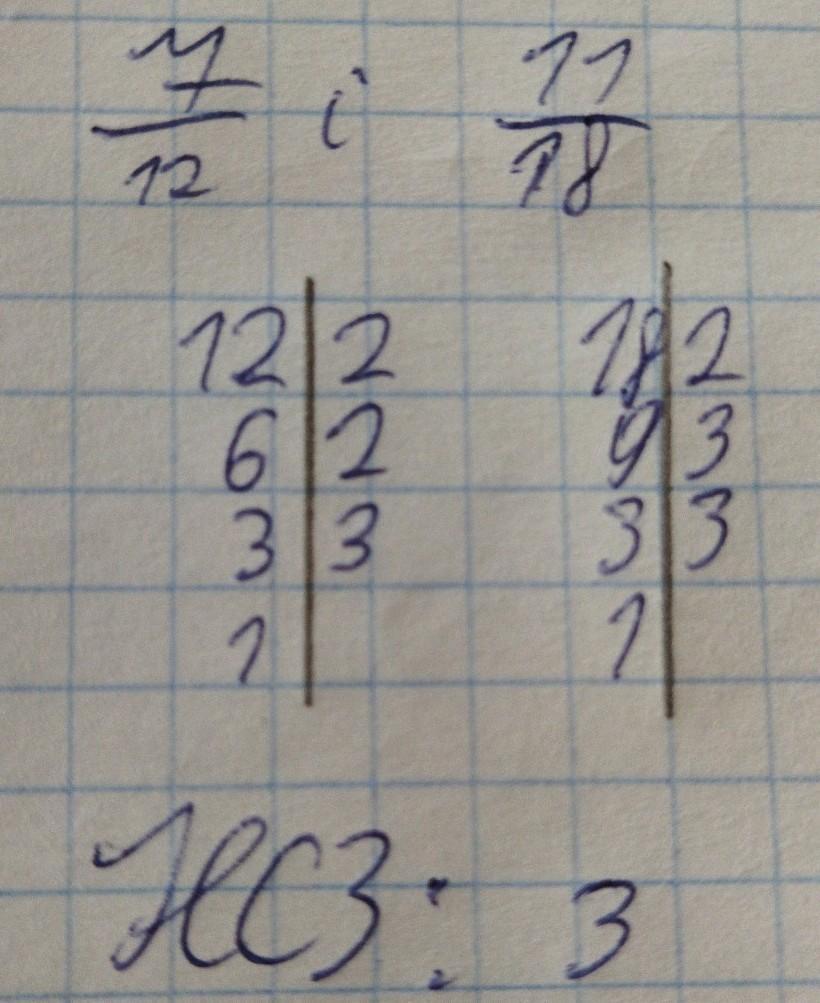 7/12 і 11/18
12 | 2 18 | 2
6 | 2 9 | 3
3 | 3 3 | 3
1 | 1 |
НСЗ: 3